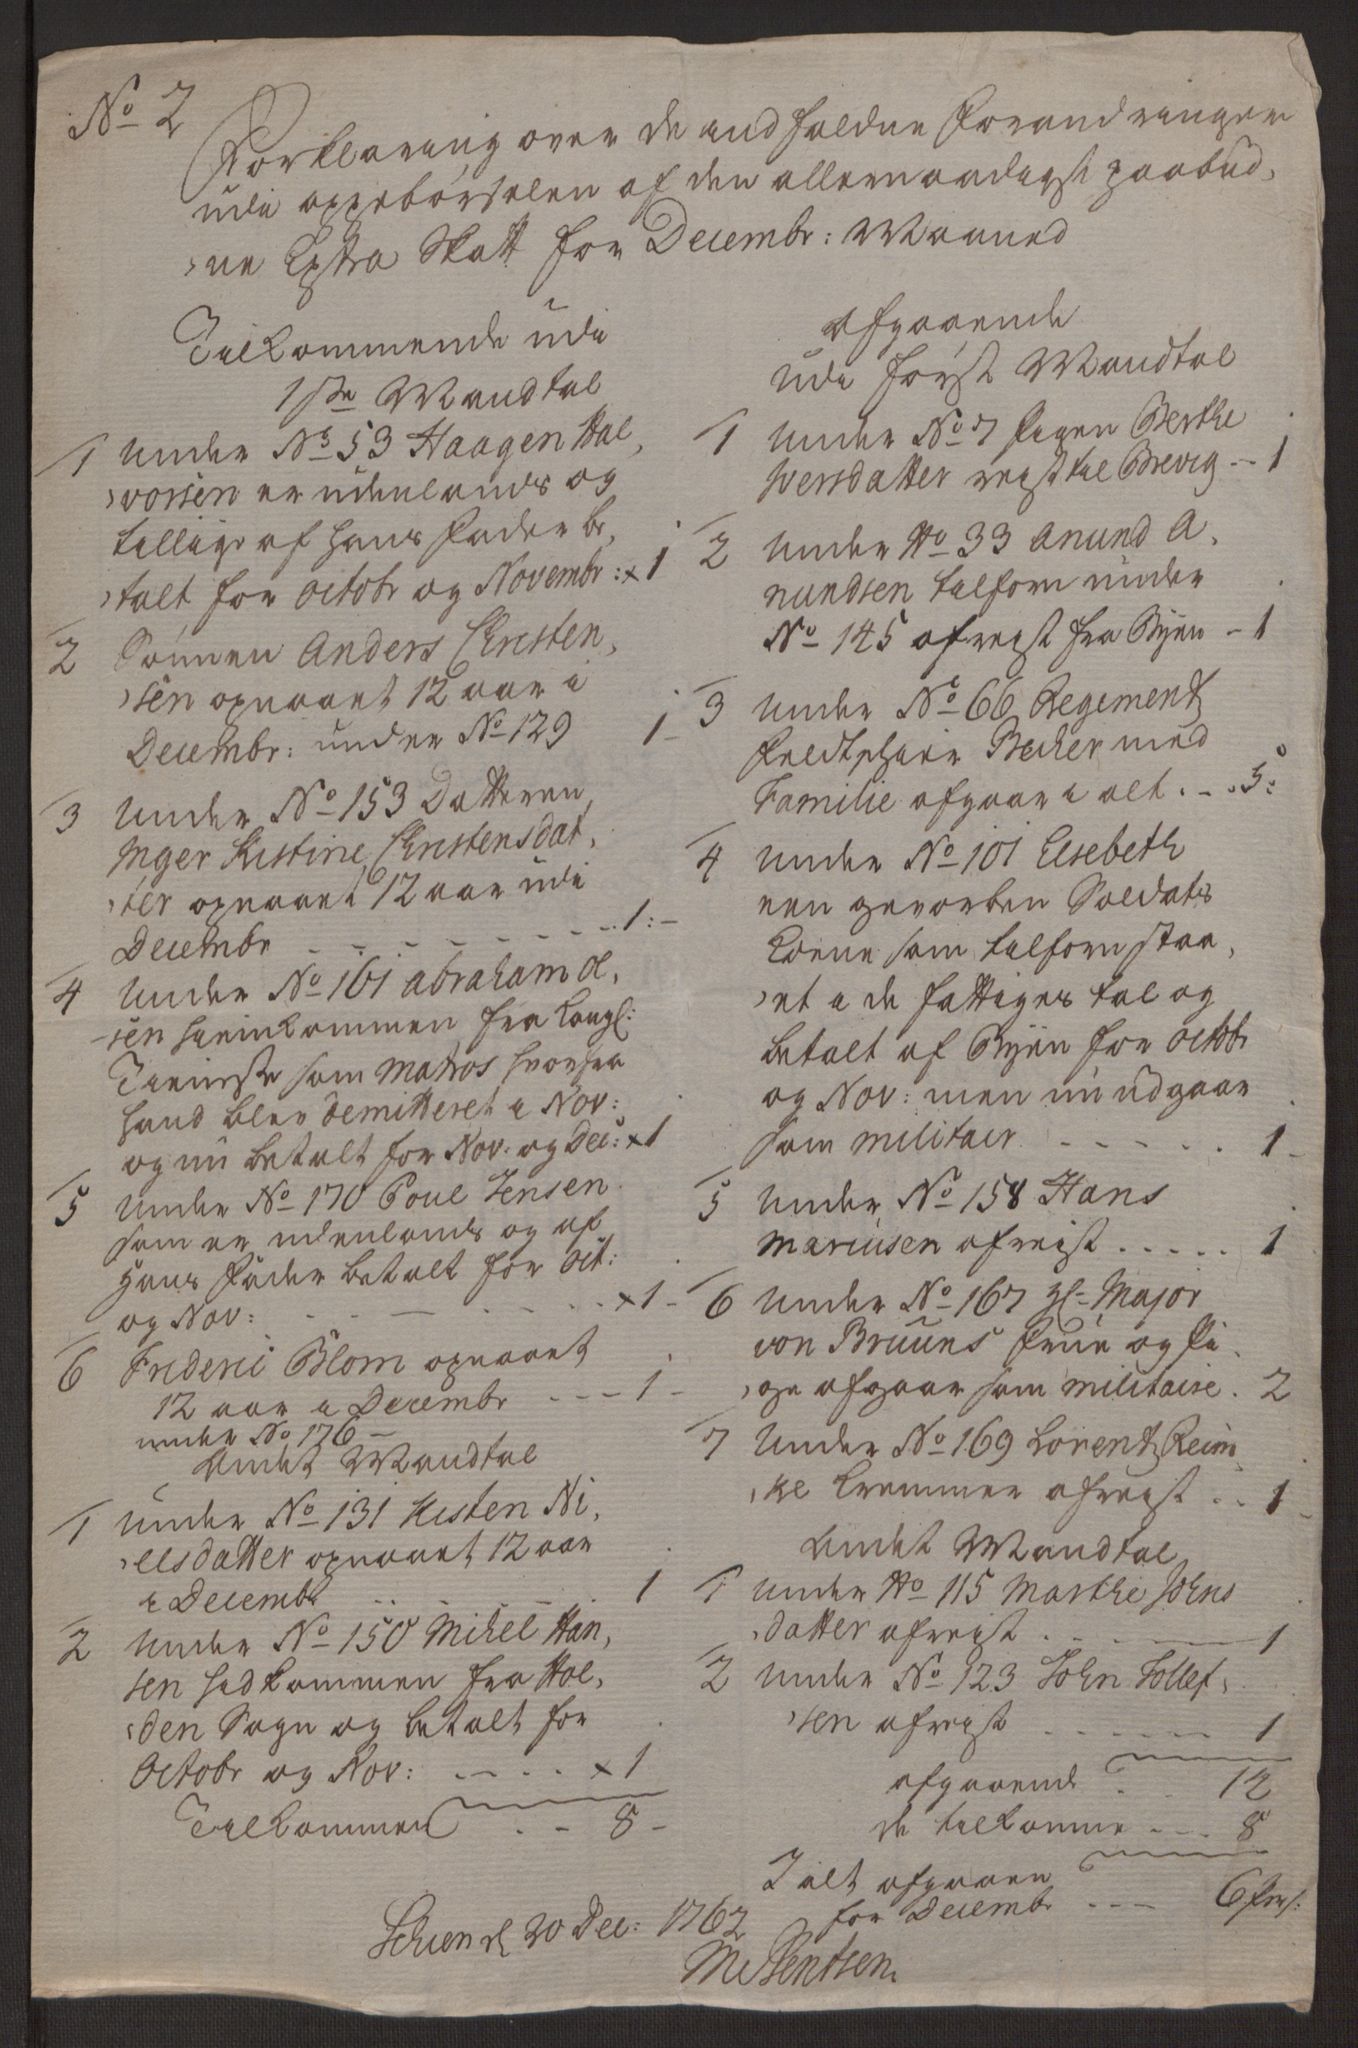 No 2
Forklaring over de indfaldne Forandringer
udi oppebørselen af den allernaadigst paabud,
ne Extra Skatt for Decembr: Maaned
Tilkommende udi
1ste Mandtal
1 under No 53 Haagen Hal,
vorsen er udenlands og
tillige af hans Fader be,
talt for Octobr og Novembr: x 1
2 Sønnen Anders Christen,
sen opnaaet 12 aar i
Decembr: under No 129 1 -
3 under No 153 Datteren
Inger Kistine Christensdat,
ter opnaaet 12 aar udi
Decembr - - - - - - 1: -
4 under No 161 Abraham Ol,
sen hiemkommen fra Kongl:
Tieniste som Matros hvorfra
hand blev demitteret i Nov:
og nu betalt for Nov. og Dec: x 1
5 under No 170 Poul Jensen
som er udenlands og af
Hans Fader betalt for Oct:
og Nov: - - - - x 1 -
6 Frideric Blom opnaaet
12 aar i Decembr - - - 1 -
under No 176 -
Andet Mandtal
1 under No 131 Kisten Ni,
elsdatter opnaaet 12 aar
i Decembr - - - 1
2 under No 150 Mikel Han,
sen hidkommen fra Hol,
den Sogn og betalt for
Octobr og Nov: - - - x 1
Tilkommen - - 8 -
afgaaende
udi først Mandtal
1 under No 7 Pigen Berthe
Iversdatter reist til Brevig - 1
2 under No 33 Anund A,
nundsen tilforn under
No 145 afreist fra Byen - 1
3 under No 66 Regements
Feldtskier Becker med
Familie afgaar i alt - - 5:
4 under No 101 Elsebeth
een gevorben Soldats
Kone som tilforn staa,
et i de fattiges tal og
betalt af Byen for Octobr
og Nov: men nu udgaar
som militair - - - - - 1 -
5 under No 158 Hans
Mariusen afreist . . . . . 1
6 under No 167 Hr Major
von Bruuns Frue og Pi,
ge afgaar som militaire. 2
7 under No 169 Lorentz Reim,
ke Kremmer afreist . . 1 -
Andet Mandtal
1 under No 115 Marthe Johns
datter afreist - - - 1
2 under No 123 John Tollef,
sen afreist - - - - 1
afgaaende - - 12
de tilkomne - - - 8
I alt afgaaen
for Decembr - - - 6 Pers:
Schien d 20 Dec: 1762